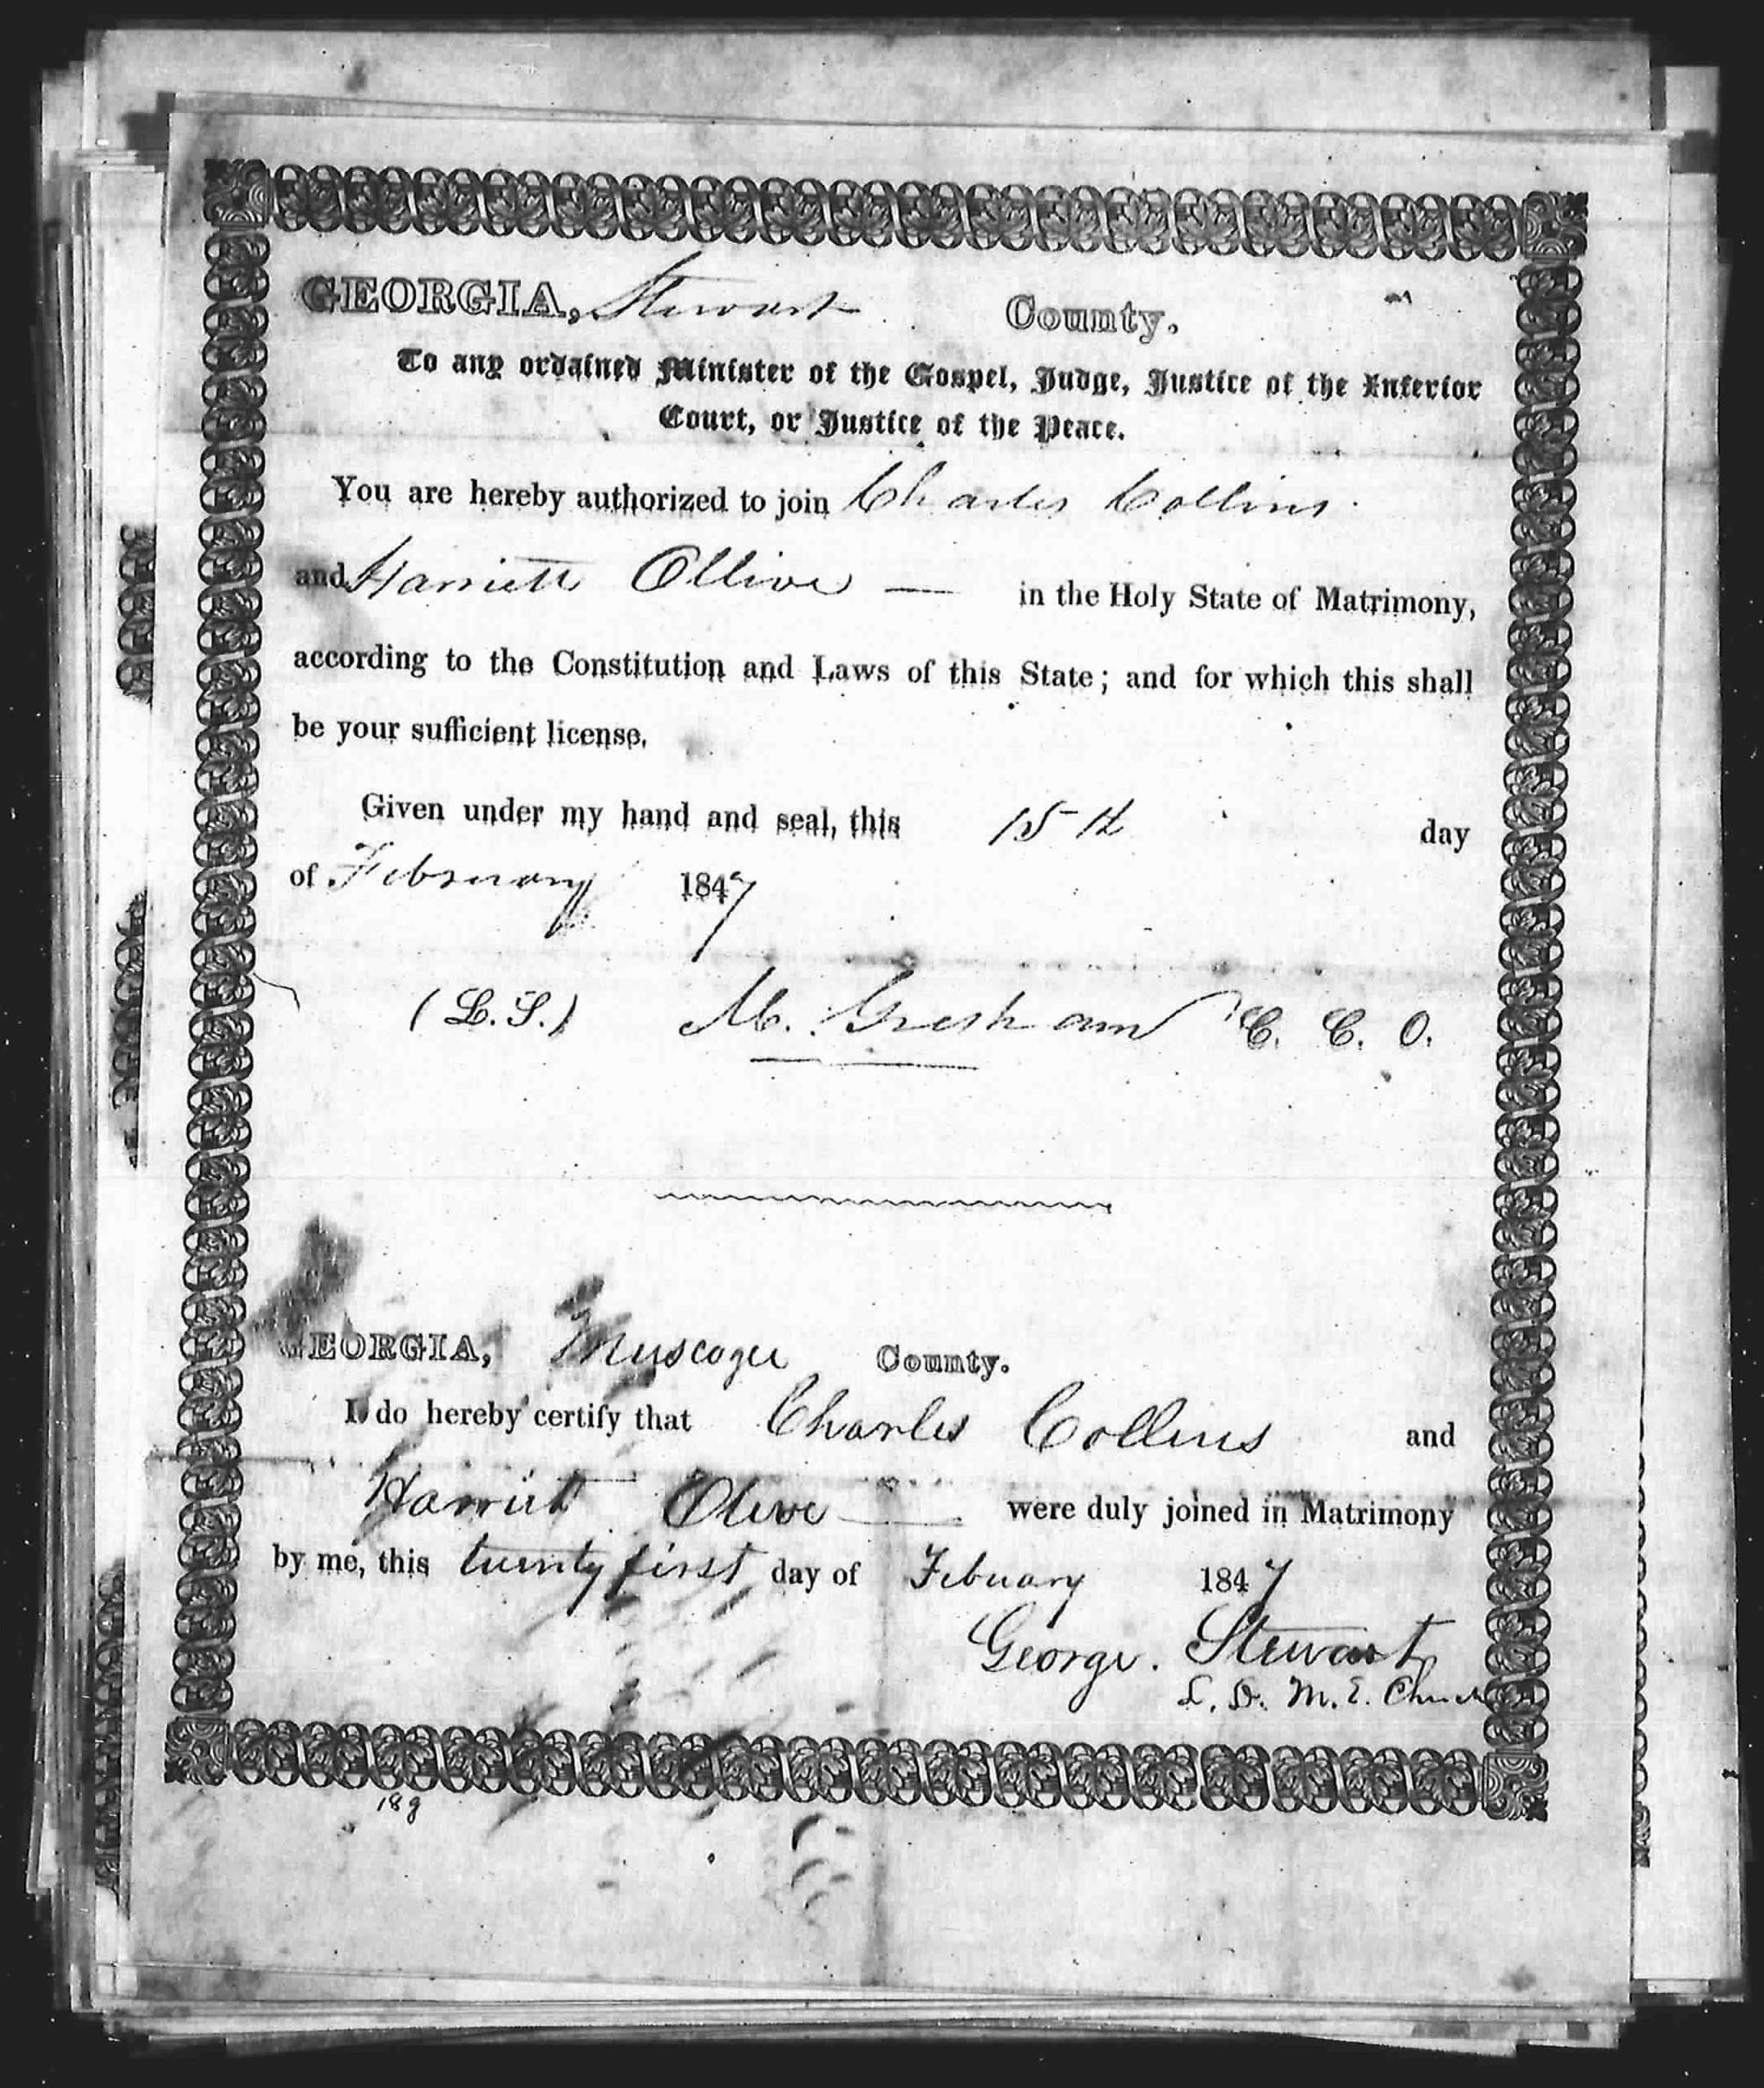 GEORGIA, Stewart County.
To any ordained Minister of the Gospel, Judge, Justice of the Inferior
Court, or Justice of the Peace.
You are hereby authorized to join Charles Collins
and Harriett Ollive — in the Holy State of Matrimony,
according to the Constitution and Laws of this State; and for which this shall
be your sufficient license.
Given under my hand and seal, this 15th day
of February 1847
(L.S.) M. Gresham C. C. O.
GEORGIA, Muscogee County.
I do hereby certify that Charles Collins and
Harriet Olive were duly joined in Matrimony
by me, this twenty first day of Febuary 1847
George. Stewart
L. D. M. E. Church
189